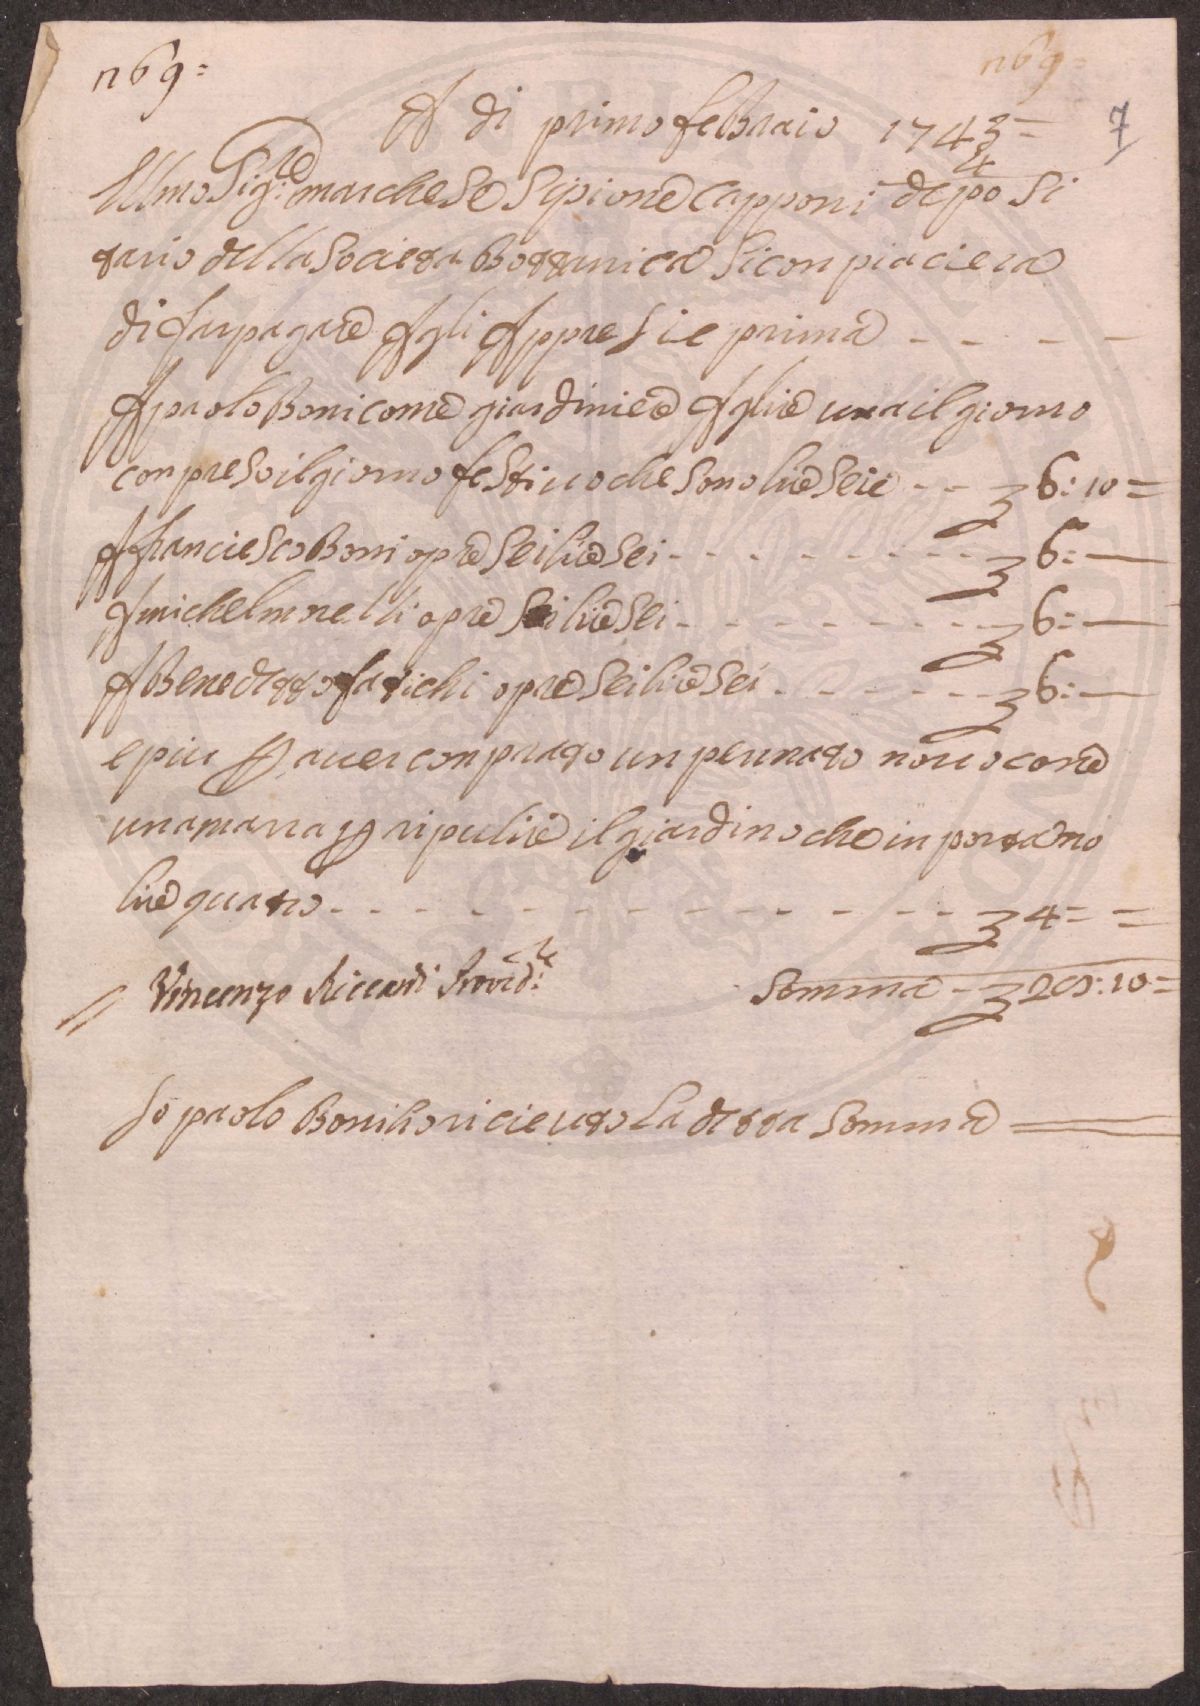 n 69 =
n 69 =
7
A di primo febbraio 1743 =
4
Illmo Sig:re marchese Sipione Capponi deposi
tario della Societa Bottanica Si conpiaciera
di far pagare A gli Appresi e prima - - - -
A paolo Boni come giardiniere A lire una il giorno
conpreso il giorno festivo che sono lire seie - - 6: 10 =
A franciesco Boni opre sei lire sei - - - - - - - - 6: —
A michel moreli opre sei lire sei - - - - - - - - 6: —
A Benedetto fatichi opre sei lire sei - - - - - - 6: —
e piu p aver conprato un pennato novo con
una marra p ripulire il giardino che in portano
lire quatro - - - - - - - - - - - - - - - - 4 = =
Vincenzo Riccardi Provid:re
Somma - 28: 10 =
Io paolo Boni ho ricieuto La detta Somma